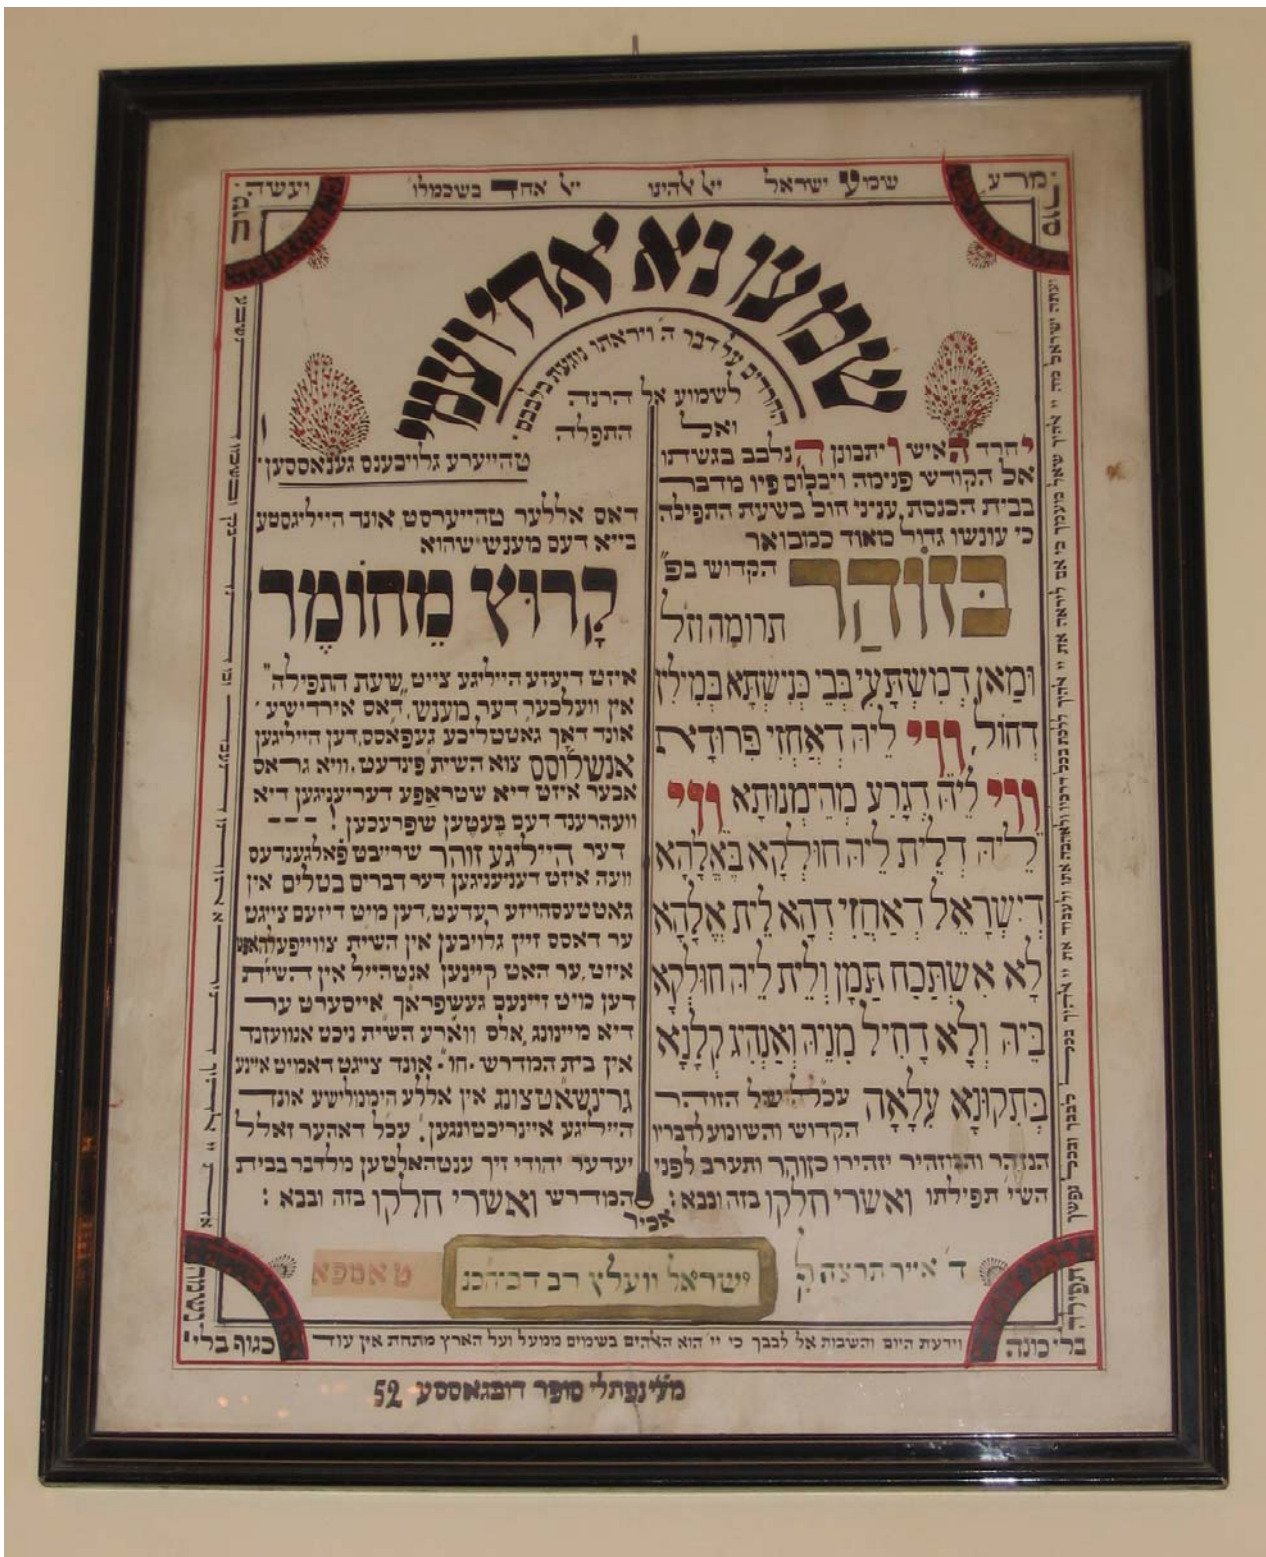 סור מרע
שמע ישראל יי אלהינו יי אחד בשכמלו
ועשה טוב
שמעו נא אחי ועמי
החרדים על דבר ה' ויראתו נוגעת בלבבם
לשמוע אל הרנה
ואל התפלה
יחרד האיש ויתבונן הנלבב בגשתו
אל הקודש פנימה ויבלום פיו מדבר
בבית הכנסת עניני חול בשעת התפילה
כי עונשו גדול מאוד כמבואר
בְּזוֹהַר הקדוש בפ"
תרומה וז"ל
וּמַאן דְמִשְׁתָּעִי בְּבֵי כְּנִישְׁתָּא בְּמִילִין
דְחוֹל, וַוי לֵיהּ דְאַחֲזֵי פִּרוּדָא
וַוי לֵיהּ דְגָרַע מְהֵימְנוּתָא וַוי
לֵיהּ דְלֵית לֵיהּ חוּלְקָא בֶּאֱלָהָא
דְיִשְׂרָאֵל דְאַחֲזֵי דְהָא לֵית אֱלָהָא
לָא אִשְׁתְּכַח תַּמָן וְלֵית לֵיהּ חוּלְקָא
בֵּיהּ וְלָא דָחִיל מִנֵיהּ וְאַנְהִיג קְלָנָא
בְּתִקוּנָא עִלָאָה עכלה של הזוהר
הקדוש והשומע לדבריו
הנזהר והמזהיר יזהירו כזוהר ותערב לפני
השי' תפילתו ואשרי חלקו בזה ובבא:
טהייערע גלויבענס גענאססען
דאס אללער טהייערסט אונד הייליגסטע
בייא דעם מענש שהוא
קָרוּץ מֵחוֹמֶר
איזט דיעזע הייליגע צייט "שעת התפילה"
אין וועלכער דער מענש, דאס אירדישע
אונד דאך געטטליכע געפאסס, דען הייליגען
אנשלוסס צוא השי"ת פינדעט, וויא גראס
אבער איזט דיא שטראפע דעריעניגען דיא
וועהרענד דעם בעטען שפרעכען! – – –
דער הייליגע זוהר שרייבט פאלגענדעס
וועה איזט דעניעניגען דער דברים בטלים אין
גאטטעסהויזע רעדעט, דען מיט דיזעם צייגט
ער דאסס זיין גלויבען אין השי"ת צווייפעלהאפט
איזט, ער האט קיינען אנטהייל אין השי"ת
דען מיט זיינעם געשפראך אייסערט ער
דיא מיינונג, אלס ווארע השי"ת ניכט אנוועזנד
אין בית המדרש חו". אונד צייגט דאמיט איינע
גרינשאטצונג אין אללע הימגלישע אונד
הייליגע איינריכטונגען! עכ"ל דאהער זאלל
יעדער יהודי זיך ענטהאלטען מלדבר בבית
המדרש ואשרי חלקו בזה ובבא:
אכי"ר
ד' אייר תרצה לק
ישראל וועלץ רב דב"הכנ
טאמפא
תפילה בלי כונה
וידעת היום והשבות אל לבבך כי יי' הוא האלהים בשמים ממעל ועל הארץ מתחת אין עוד
כגוף בלי נשמה
ועתה ישראל מה יי אלהיך שואל מעמך כי אם ליראה את יי אלהיך ללכת בכל דרכיו ולאהבה אתו ולעבוד את יי אלהיך בכל לבבך ובכל נפשך
נפתלי סופר דובגאססע 52